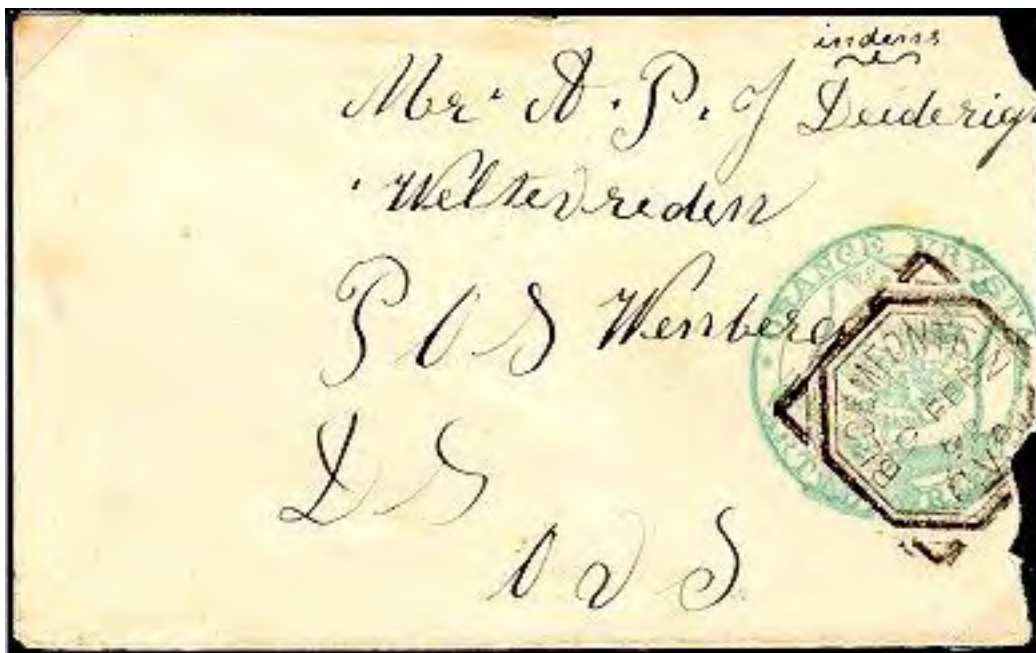 indens
Mr. A. P. J Deiderigs
Weltevreden
P O S Wenberg
D S
O V S
ORANGE VRYSTAAT
BLOEMFONTEIN
FE